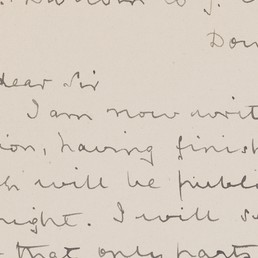 Dow
dear Sir
I am now writ
ion, having finish
will be publi
night. I will s
that only parts